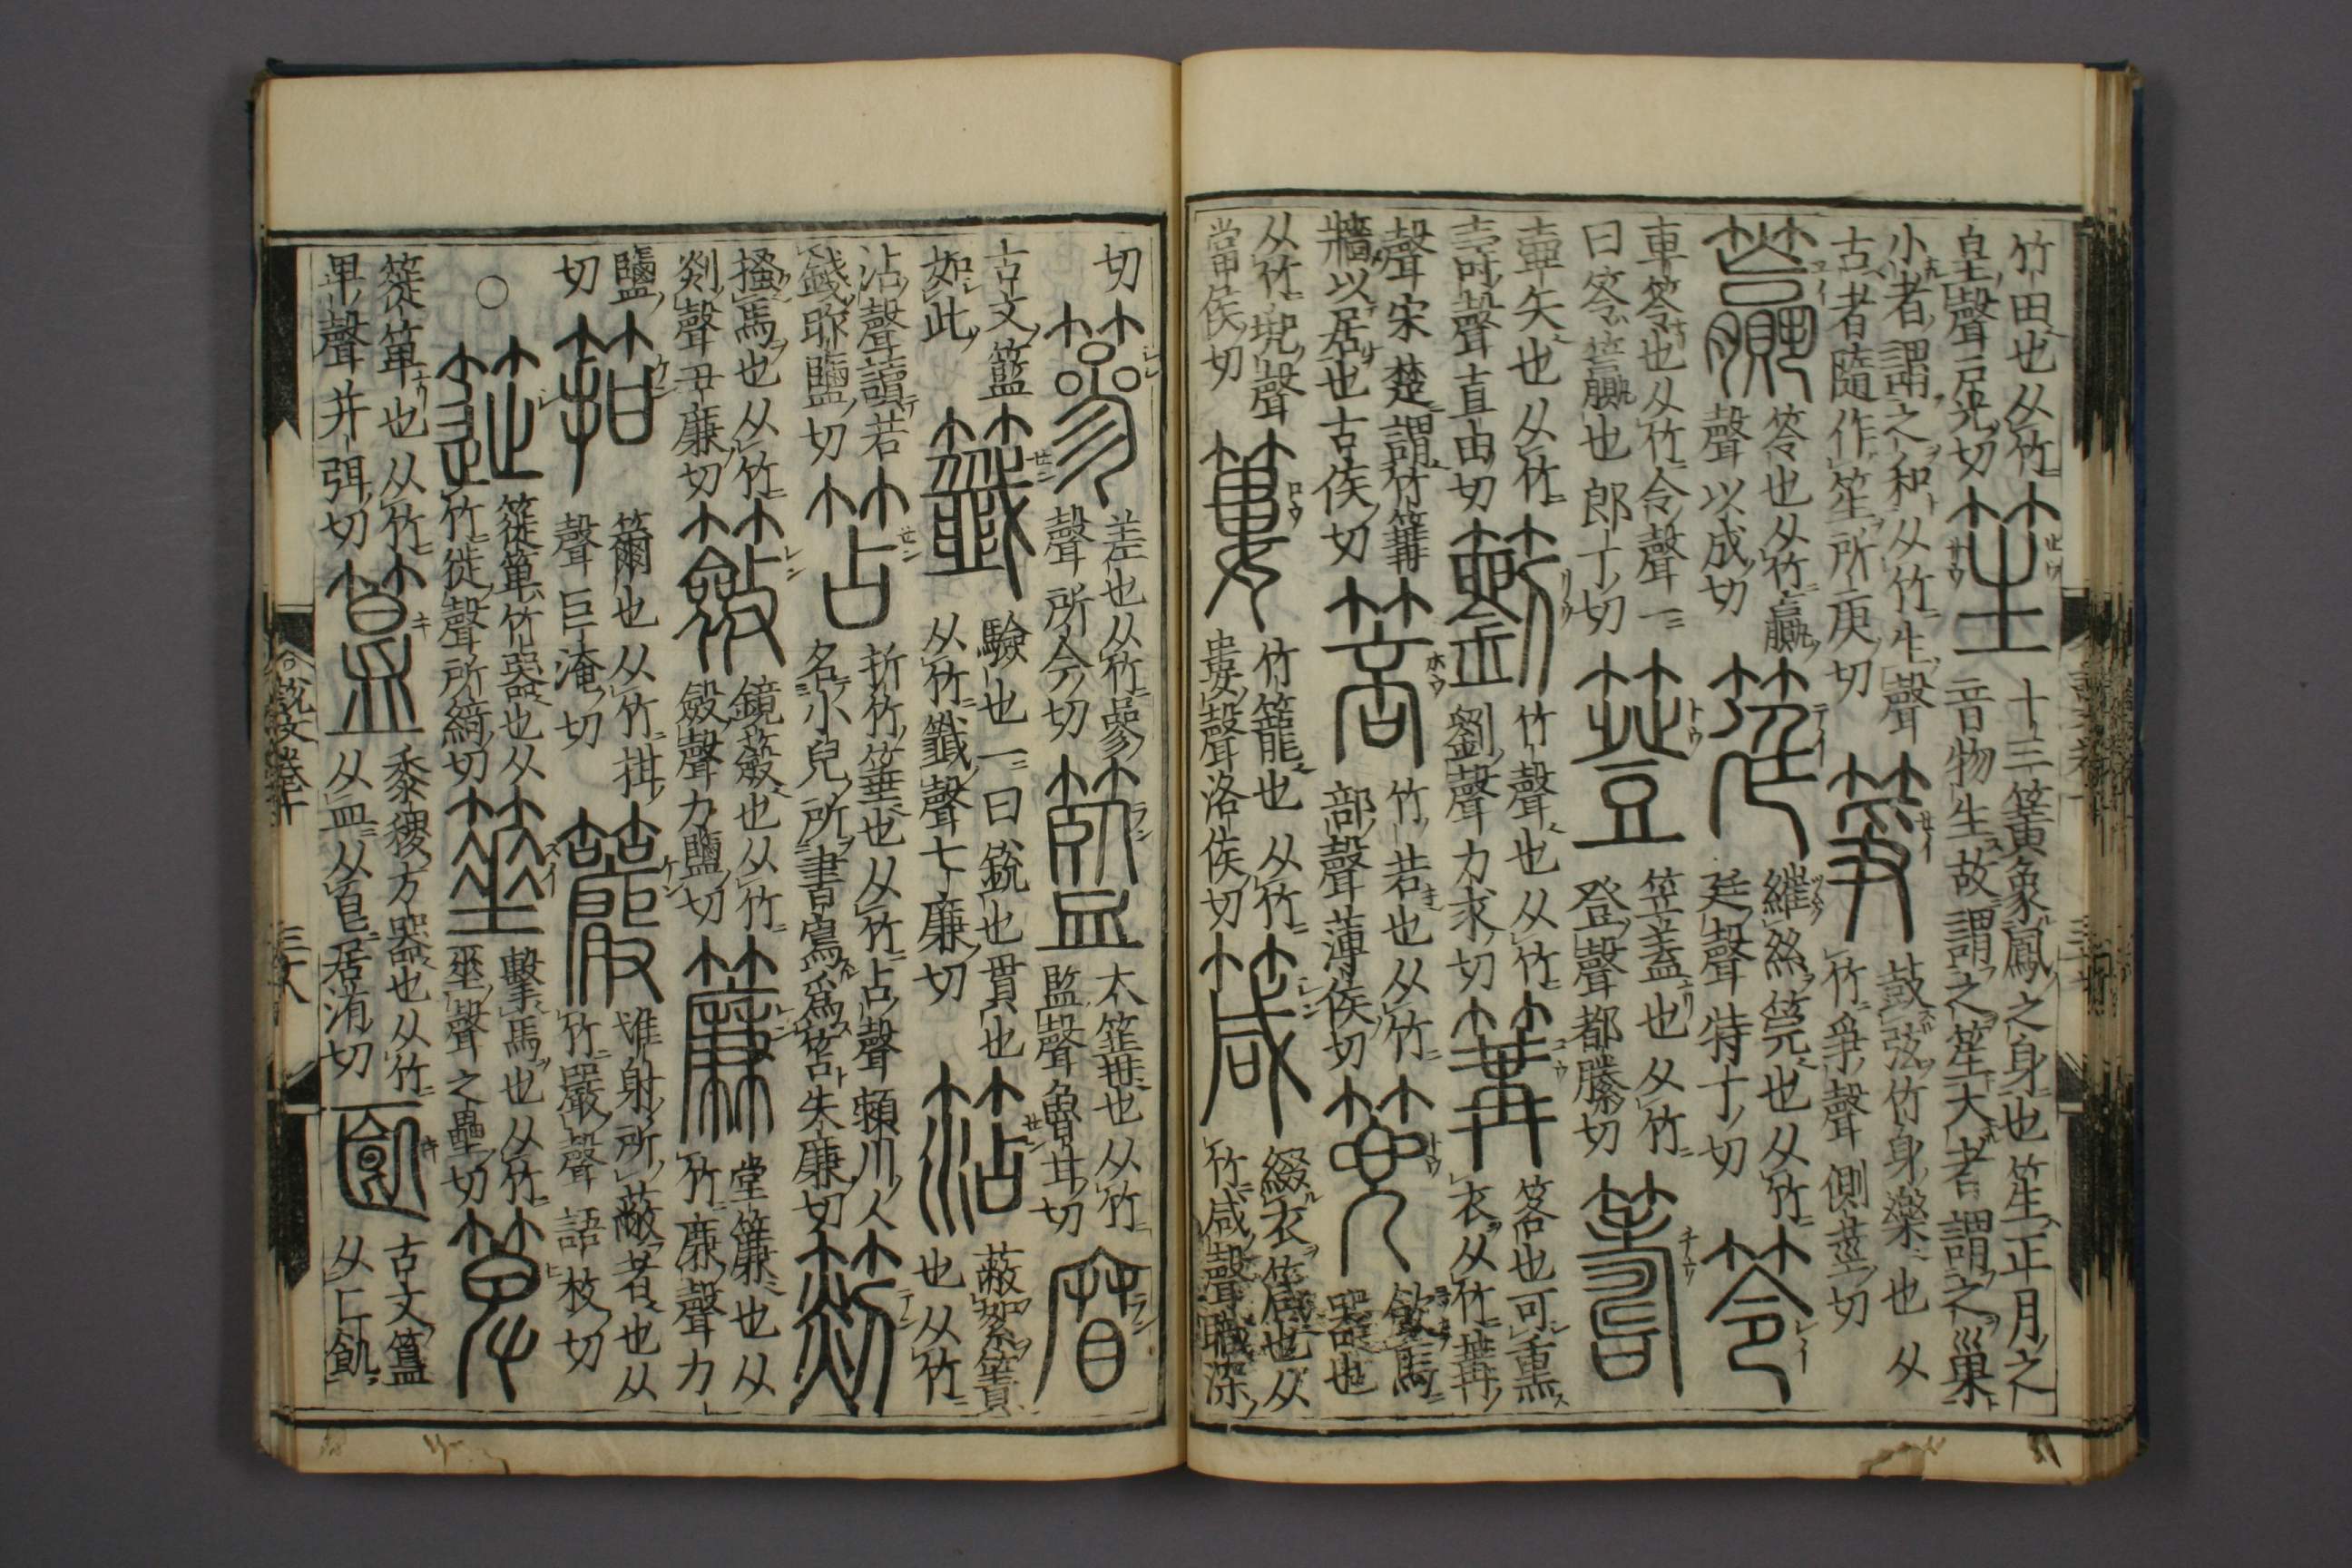 竹田也从竹
皇聲戸光切
笙
十三簧象鳳之身也笙正月之
音物生故謂之笙大者謂之巢
小者謂之和从竹生聲
古者隨作笙所庚切
箏
鼓弦竹身樂也从
竹爭聲側莖切
籯
笭也从竹贏
聲以成切
筳
維絲筦也从竹
廷聲特丁切
笭
車笭也从竹令聲一
曰笭籯也郎丁切
簦
笠蓋也从竹
登聲都滕切
籌
壷矢也从竹
壽聲直由切
竹聲也从竹
劉聲力求切
篝
笿也可熏
衣从竹冓
聲宋楚謂竹篝
牆以居也古侯切
箁
竹若也从竹
部聲薄侯切
篼
飲馬
器也
从竹兜聲
當侯切
簍
竹籠也从竹
婁聲洛侯切
箴
綴衣箴也从
竹咸聲職深
切
篸
差也从竹參
聲所今切
籃
大篝也从竹
監聲魯甘切
古文籃
如此
籤
驗也一曰銳也貫也
从竹韱聲七廉切
䈴
蔽絮簀
也从竹
沾聲讀若
錢昨鹽切
笘
折竹箠也从竹占聲潁川人
名小兒所書寫爲笘失廉切
搔馬也从竹
剡聲丑廉切
籢
鏡籢也从竹
斂聲力鹽切
簾
堂簾也从
竹廉聲力
鹽
切
箝
籋也从竹拑
聲巨淹切
惟射所蔽者也从
竹嚴聲語枚切
○
簁
簁箄竹器也从
竹徙聲所綺切
箠
擊馬也从竹
垂聲之壘切
箄
簁箄也从竹
卑聲并弭切
簋
黍稷方器也从竹
从皿从皀居洧切
古文簋
从匚飢
說文卷十